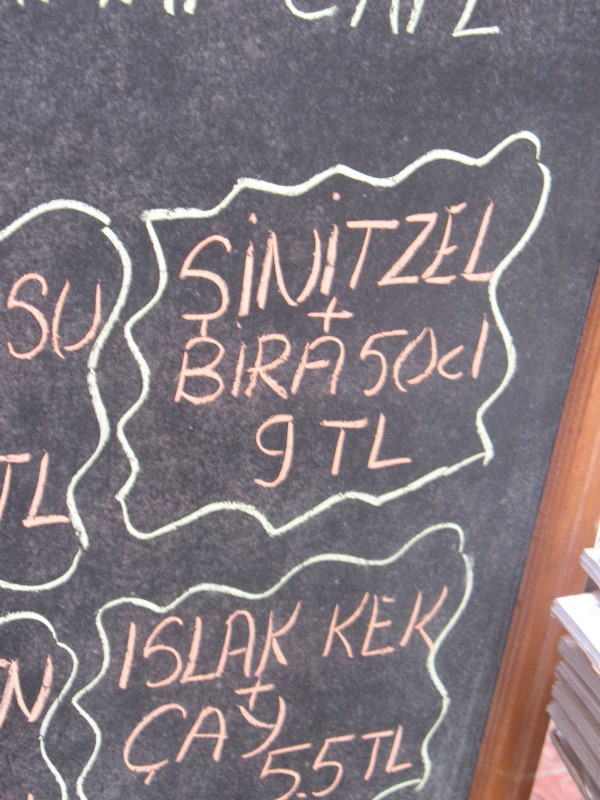 CAFE
SU
TL
ŞİNİTZEL
+
BİRA 50cl
9 TL
ISLAK KEK
+
ÇAY
5.5 TL